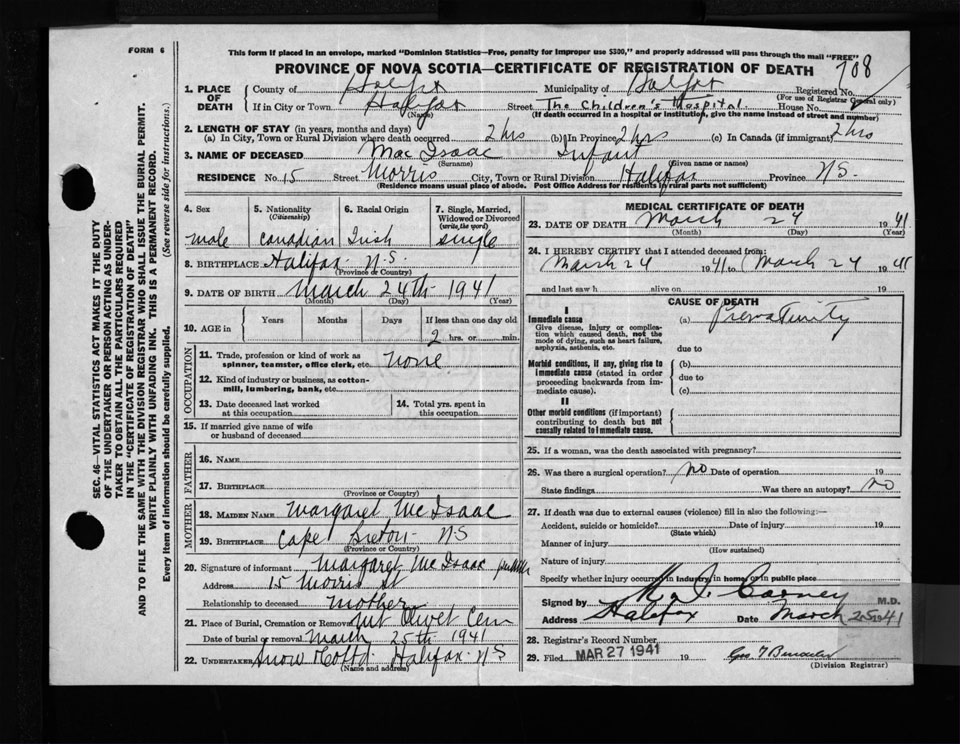 FORM 6
This form if placed in an envelope, marked "Dominion Statistics—Free, penalty for improper use $300," and properly addressed will pass through the mail "FREE"
PROVINCE OF NOVA SCOTIA—CERTIFICATE OF REGISTRATION OF DEATH 708
1. PLACE OF DEATH { County of Halifax Municipality of Halifax Registered No.
(For use of Registrar General only)
If in City or Town Halifax Street The Children's Hospital. House No.
(Name) (If death occurred in a hospital or institution, give the name instead of street and number)
2. LENGTH OF STAY (in years, months and days)
(a) In City, Town or Rural Division where death occurred 2 hrs (b) In Province 2 hrs (c) In Canada (if immigrant) 2 hrs
3. NAME OF DECEASED Mac Isaac Infant
(Surname) (Given name or names)
RESIDENCE No. 15 Street Morris City, Town or Rural Division Halifax Province N.S.
(Residence means usual place of abode. Post Office Address for residents in rural parts not sufficient)
4. Sex male
5. Nationality (Citizenship) Canadian
6. Racial Origin Irish
7. Single, Married, Widowed or Divorced (write the word) single
8. BIRTHPLACE Halifax N.S.
(Province or Country)
9. DATE OF BIRTH March 24th 1941
(Month) (Day) (Year)
10. AGE in { Years Months Days If less than one day old
2 hrs. or min.
OCCUPATION
11. Trade, profession or kind of work as spinner, teamster, office clerk, etc. none
12. Kind of industry or business, as cotton-mill, lumbering, bank, etc.
13. Date deceased last worked at this occupation
14. Total yrs. spent in this occupation
15. If married give name of wife or husband of deceased
FATHER
16. NAME
17. BIRTHPLACE
(Province or Country)
MOTHER
18. MAIDEN NAME Margaret McIsaac
19. BIRTHPLACE Cape Breton NS
(Province or Country)
20. Signature of informant Margaret McIsaac
Address 15 Morris St
Relationship to deceased mother
21. Place of Burial, Cremation or Removal Mt Olivet Cem
Date of burial or removal March 25th 1941
22. UNDERTAKER Snow & Co Ltd. Halifax NS
(Name and address)
MEDICAL CERTIFICATE OF DEATH
23. DATE OF DEATH March 24 1941
(Month) (Day) (Year)
24. I HEREBY CERTIFY that I attended deceased from:
March 24 1941 to March 24 1941
and last saw h alive on 19
CAUSE OF DEATH
I
Immediate cause (a) Prematurity
Give disease, injury or complication which caused death, not the mode of dying, such as heart failure, asphyxia, asthenia, etc.
due to
Morbid conditions, if any, giving rise to immediate cause (stated in order proceeding backwards from immediate cause).
(b)
due to
(c)
II
Other morbid conditions (if important) contributing to death but not causally related to immediate cause.
25. If a woman, was the death associated with pregnancy?
26. Was there a surgical operation? no Date of operation 19
State findings Was there an autopsy? no
27. If death was due to external causes (violence) fill in also the following:—
Accident, suicide or homicide? Date of injury 19
(State which)
Manner of injury
(How sustained)
Nature of injury
Specify whether injury occurred in industry, in home, or in public place
Signed by Carney M.D.
Address Halifax Date March 25 1941
28. Registrar's Record Number
29. Filed MAR 27 1941 19
(Division Registrar)
SEC. 46—VITAL STATISTICS ACT MAKES IT THE DUTY
OF THE UNDERTAKER OR PERSON ACTING AS UNDER-
TAKER TO OBTAIN ALL THE PARTICULARS REQUIRED
IN THE "CERTIFICATE OF REGISTRATION OF DEATH"
AND TO FILE THE SAME WITH THE DIVISION REGISTRAR WHO SHALL ISSUE THE BURIAL PERMIT.
WRITE PLAINLY WITH UNFADING INK. THIS IS A PERMANENT RECORD.
Every item of information should be carefully supplied. (See reverse side for instructions.)